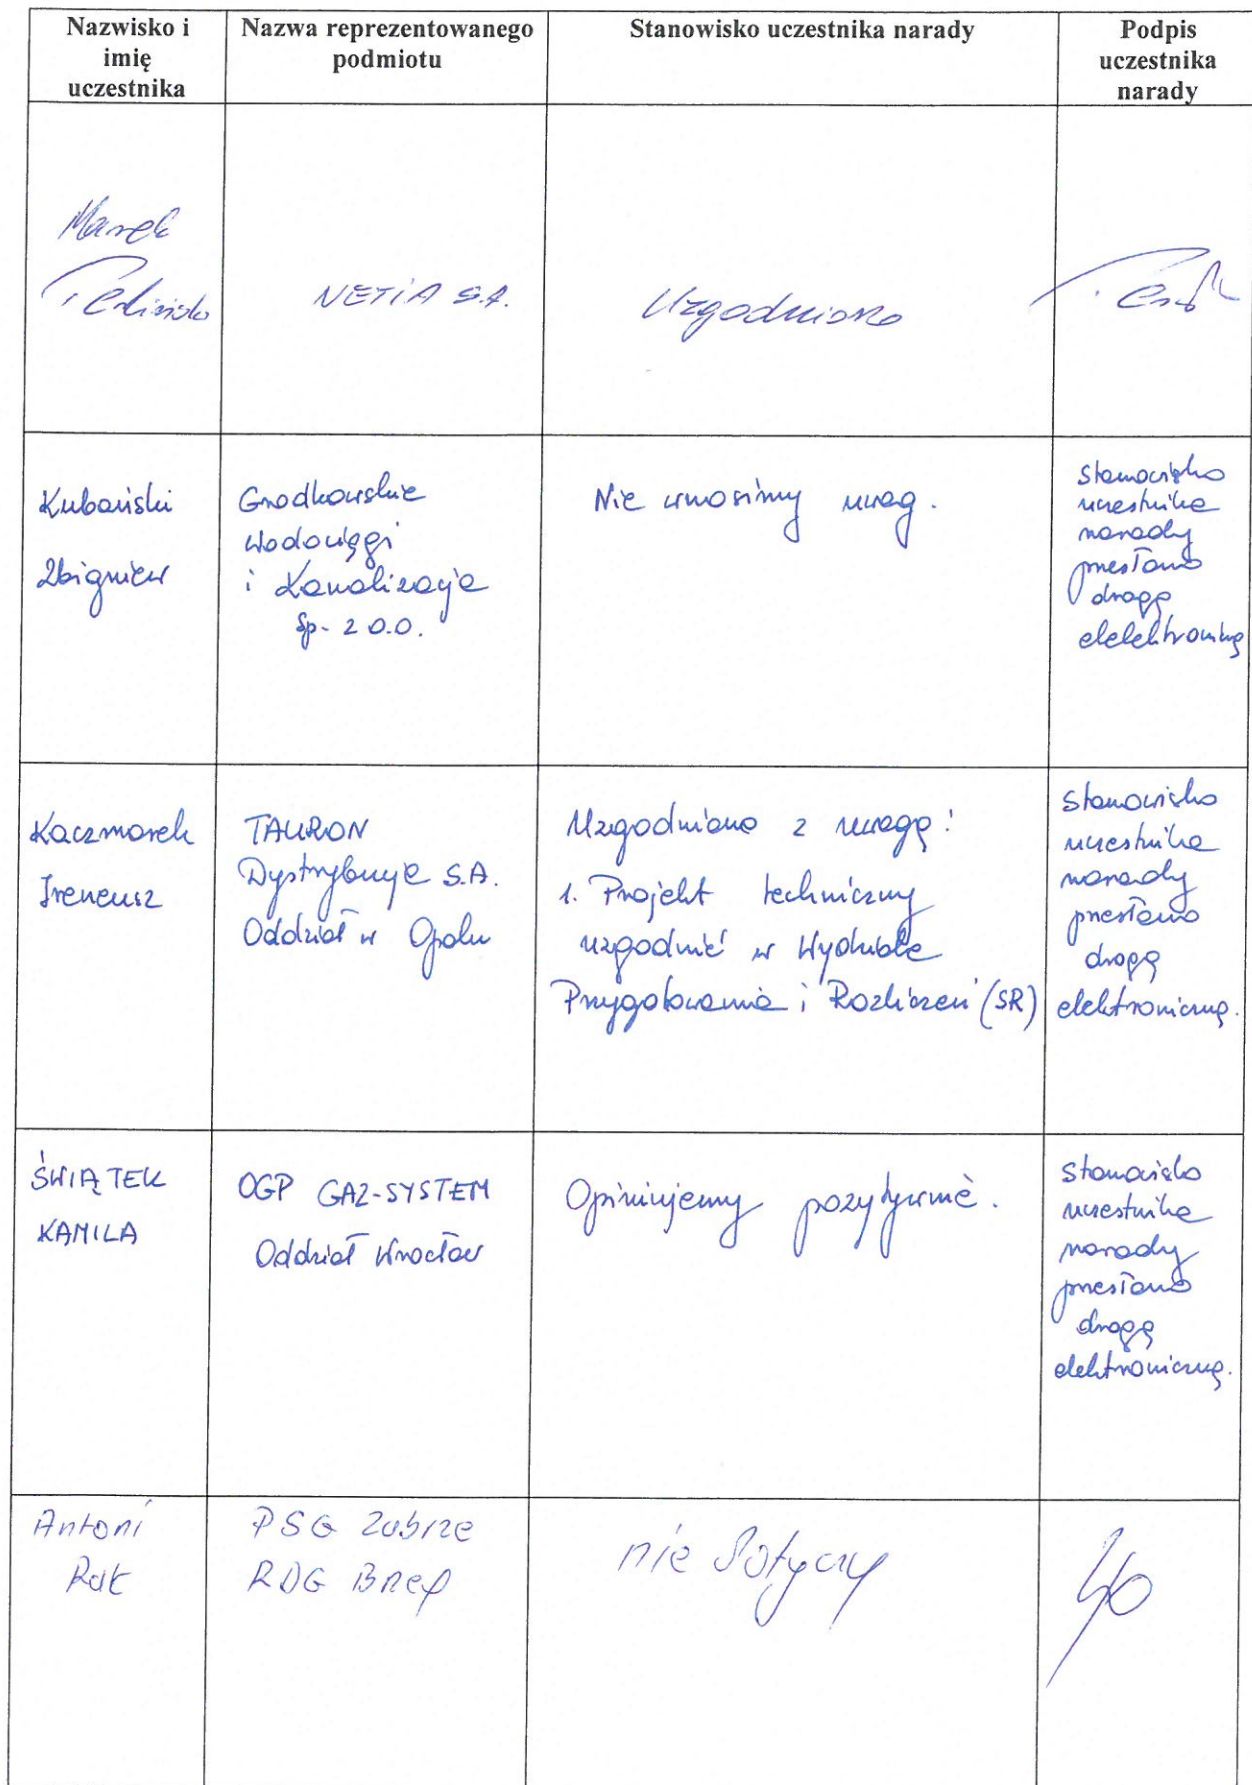 Nazwisko i
imię
uczestnika
Nazwa reprezentowanego
podmiotu
Stanowisko uczestnika narady
Podpis
uczestnika
narady
Marek
NETIA S.A.
Uzgodniono
Kubański
Zbigniew
Grodkowskie
Wodociągi
i Kanalizacja
Sp. z o.o.
Nie wnosimy uwag.
Stanowisko
uczestnika
narady
przesłano
drogą
elelektroniczną
Kaczmarek
Ireneusz
TAURON
Dystrybucja S.A.
Oddział w Opolu
Uzgodniono z uwagą:
1. Projekt techniczny
uzgodnić w Wydziale
Przygotowania i Rozliczeń (SR)
Stanowisko
uczestnika
narady
przesłano
drogą
elektroniczną.
ŚWIĄTEK
KAMILA
OGP GAZ-SYSTEM
Oddział Wrocław
Opiniujemy pozytywnie.
Stanowisko
uczestnika
narady
przesłano
drogą
elektroniczną.
Antoni
Rak
PSG Zabrze
RDG Brzeg
nie dotyczy